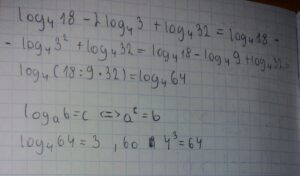 log₄18 - 2log₄3 + log₄32 = log₄18 -
- log₄3² + log₄32 = log₄18 - log₄9 + log₄32 =
log₄(18:9·32) = log₄64
logₐb = c <=> aᶜ = b
log₄64 = 3, bo 4³ = 64